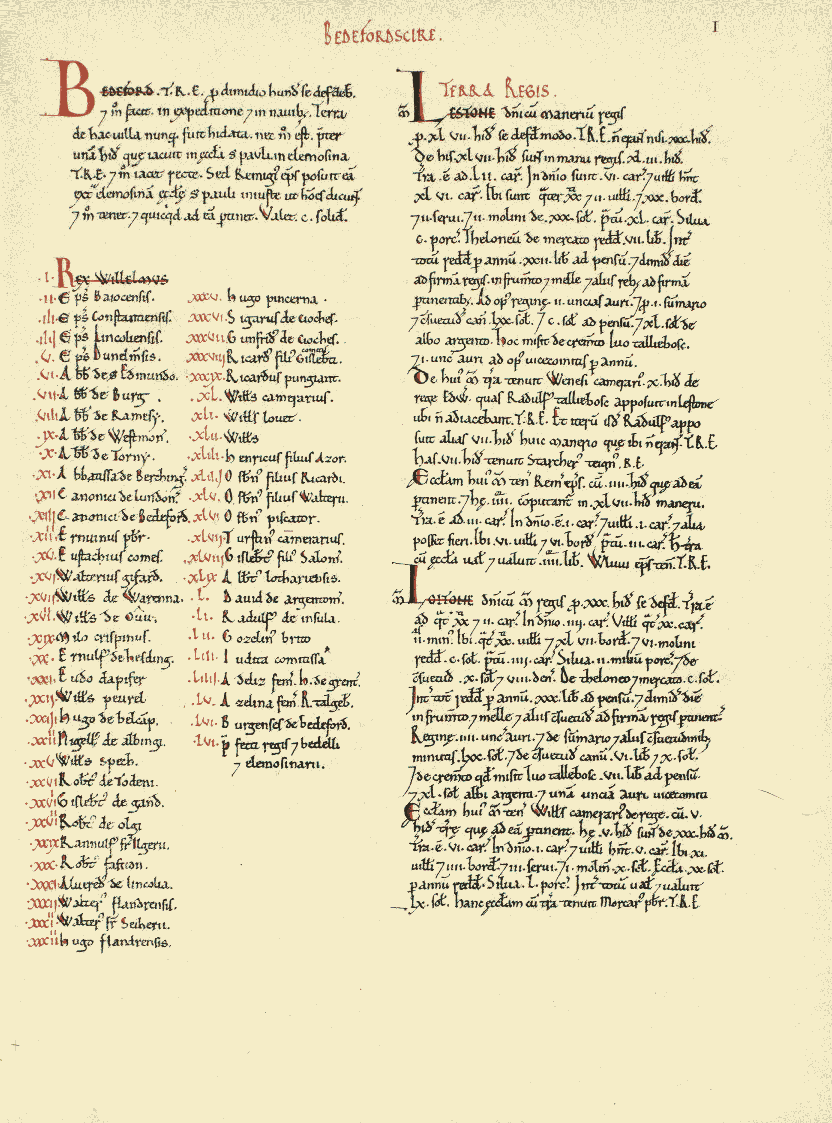 BEDEFORDSCIRE.
I
BEDEFORD. T.R.E. p dimidio hund se defdeb.
⁊ m̃ facit. in expeditione ⁊ in nauib;. Terra
de hac uilla nunq̃ fuit hidata. nec m̃ est. p̃ter
unā hid̃ que iacuit in ęccła s̃ pauli in elemosina
T.R.E. ⁊ m̃ iacet recte. Sed Remigi⁹ ep̃s posuit eā
ext̃ elemosinā ęcclę s̃ pauli iniuste ut hões dicunt
⁊ m̃ tenet. ⁊ quicq̃d ad eā ptinet. Valet. c. solid̃.
.I. REX WILLELMVS
.II. Ep̃s Baiocensis.
.III. Ep̃s Constantiensis.
.IIII. Ep̃s Lincoliensis.
.V. Ep̃s Dunelm̃sis.
.VI. Abb̃ de S Edmundo.
.VII. Abb̃ de Burg.
.VIII. Abb̃ de Ramesy.
.IX. Abb̃ de Westmon̄.
.X. Abb̃ de Torny.
.XI. Abbatissa de Berching̃.
.XII. Canonici de lundon̄.
.XIII. Canonici de Bedeford.
.XIIII. Ernuinus pb̃r.
.XV. Eustachius comes.
.XVI. Walterius gifard.
.XVII. Wills de Warenna.
.XVIII. Wills de Ou.
.XIX. Milo crispinus.
.XX. Ernulf⁹ de hesding.
.XXI. Eudo dapifer
.XXII. Wills peurel
.XXIII. Hugo de belcāp.
.XXIIII. Nigell⁹ de albingi.
.XXV. Wills spech.
.XXVI. Robt⁹ de Todeni.
.XXVII. Gislebt⁹ de gand.
.XXVIII. Robt⁹ de olgi
.XXIX. Rannulf⁹ fr̃ Ilgerii.
.XXX. Robt⁹ fafiton.
.XXXI. Alvered⁹ de lincolia.
.XXXII. Walter⁹ flandrensis.
.XXXIII. Walter⁹ fr̃ Seiherii.
.XXXIIII. Hugo flandrensis.
.XXXV. Hugo pincerna.
.XXXVI. Sigarus de cioches.
.XXXVII. Gunfrid⁹ de cioches.
.XXXVIII. Ricard⁹ fili⁹ Gislebti comitis.
.XXXIX. Ricardus pungiant.
.XL. Wills camerarius.
.XLI. Wills louet.
.XLII. Wills
.XLIII. Henricus filius Azor.
.XLIIII. Osbn⁹ filius Ricardi.
.XLV. Osbn⁹ filius Walterii.
.XLVI. Osbn⁹ piscator.
.XLVII. Turstin⁹ camerarius.
.XLVIII. Gislebt⁹ fili⁹ Salom̄.
.XLIX. Albt⁹ lothariensis.
.L. Dauid de argentom̄.
.LI. Radulf⁹ de insula.
.LII. Gozelin⁹ brito
.LIII. Iudita comitissa
.LIIII. Adeliz fem̄. H. de grent̃.
.LV. Azelina fem̄ R. talgeb̃.
.LVI. Burgenses de bedeford.
.LVII. p̃fecti regis ⁊ bedelli
⁊ elemosinarii.
TERRA REGIS.
m̃ LESTONE dñicū maneriū regis
p. xl vii. hid̃ se defd̃ modo. T.R.E. ñ erant nisi. xxx. hid̃.
De his. xl vii. hid̃ sunt in manu regis. xl. iii. hid̃.
Tr̃a. ē ad. l.ii. car̃. In dñio sunt. vi. car̃. ⁊ uilli hñt
xl vi. car̃. Ibi sunt q̃ter xx ⁊ ii. uilli. ⁊ xxx. bord̃.
⁊ ii. serui. ⁊ ii. molini de. xxx. sol. p̃tū. xl. car̃. Silua
c. porc̃. Theloneū de mercato redd̃. vii. lib. Int̃
totū redd̃ p annū. xxii. lib ad pensū. ⁊ dimid̃ diē
ad firmā regis. in frumto ⁊ melle ⁊ aliis reb; ad firmā
ptinentib;. Ad op⁹ reginę. ii. uncias auri. ⁊ p. i. sūmario
⁊ c̃suetud̃ can̄. lxx. sol. ⁊ c. sol ad pensū. ⁊ xl. sol de
albo argento. hoc misit de crem̃to Iuo tallebosc.
⁊ i. unc̃ auri ad op⁹ uicecomitis p annū.
De hui⁹ m̃ tr̃a tenuit Wenesi camerari⁹. x. hid̃ de
rege Edw. quas Radulf⁹ talliebosc apposuit in Lestone
ubi ñ adiacebant. T.R.E. Et iterū isd̃ Radulf⁹ appo
suit alias. vii. hid̃ huic manerio que ibi ñ erant. T.R.E.
has. vii. hid̃ tenuit Starcher⁹ teign⁹. R.E.
Ęccłam hui⁹ m̃ ten̄ Remi⁹ ep̃s. cū. iiii. hid̃ que ad eā
ptinent. ⁊ hę. iiii. cōputant̃ in. xl vii. hid̃ manerii.
Tr̃a. ē ad. iii. car̃. In dñio. ē. i. car̃. ⁊ uilli. i. car̃. ⁊ alia
posset fieri. Ibi. vi. uilli ⁊ vi. bord̃ p̃tū. iii. car̃. Hęc tr̃a
cū ęccła ual̃ ⁊ ualuit. iiii. lib. Wluui ep̃s ten̄. T.R.E.
m̃ LOITONE dñicū m̃ regis p. xxx. hid̃ se defd̃. Tr̃a ē
ad q̃t̃ xx ⁊ ii. car̃. In dñio. iiii. car̃. Villi q̃t̃ xx. car̃.
ii. min⁹. Ibi. q̃t̃ xx. uilli ⁊ xl vii. bord̃. ⁊ vi. molini
redd̃. c. sol. p̃tū. iiii. car̃. Silua. ii. milibū porc̃. ⁊ de
c̃suetud̃. x. sol ⁊ viii. den̄. De theloneo ⁊ mercato. c. sol.
Int̃ tot̃ redd̃ p annū. xxx. lib ad pensū. ⁊ dimid̃ diē
in frumto ⁊ melle ⁊ aliis c̃suetud̃ ad firmā regis ptinent⁹.
Reginę. iiii. unc̃ auri. ⁊ de sūmario ⁊ aliis c̃suetudinib;
minutis. lxx. sol. ⁊ de c̃suetud̃ canū. vi. lib ⁊ x. sol.
⁊ de crem̃to qd̃ misit Iuo tallebosc. vii. lib ad pensū.
⁊ xl. sol albi argenti. ⁊ unā unciā auri uicecomiti
Ęccłam hui⁹ m̃ ten̄ Wills camerari⁹ de rege. cū. v.
hid̃ tr̃ę que ad eā ptinent. hę. v. hid̃ sunt de xxx. hid̃ m̃.
Tr̃a. ē. vi. car̃. In dñio. i. car̃. ⁊ uilli hñt. v. car̃. Ibi xi.
uilli ⁊ iiii. bord̃. ⁊ iii. serui. ⁊ i. molin̄. x. sol. Ęccła. xx. sol.
p annū redd̃. Silua. l. porc̃. Int̃ totū ual̃ ⁊ ualuit
lx. sol. hanc ęccłam cū tr̃a tenuit Morcar⁹ pb̃r. T.R.E